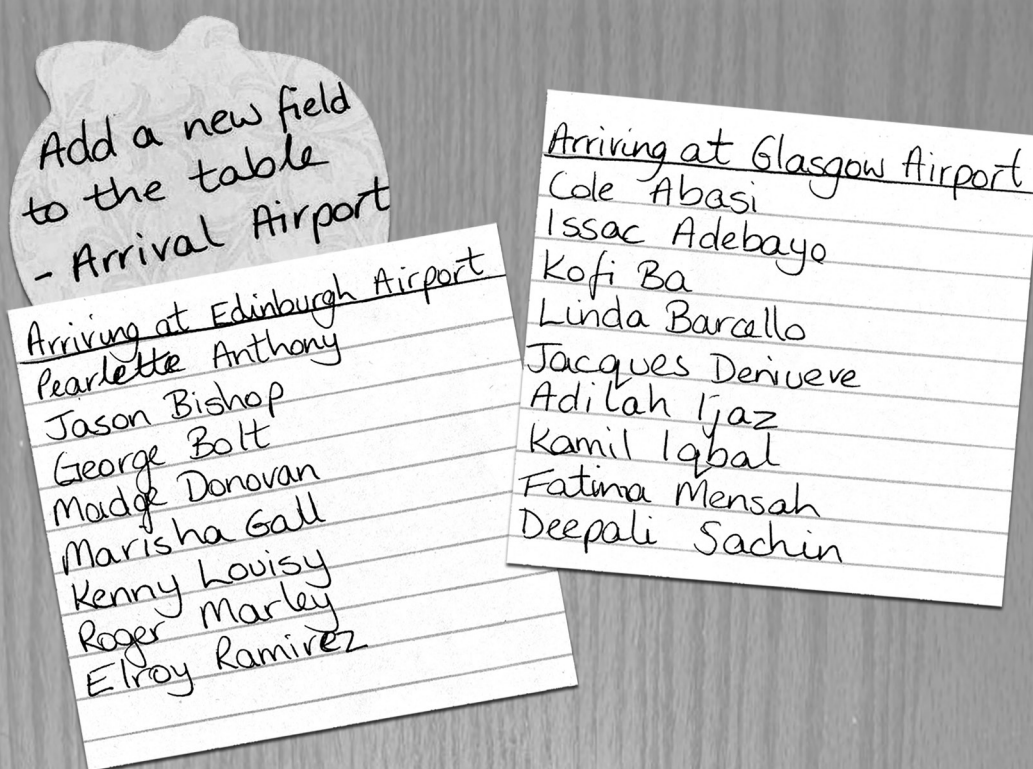 Add a new field
to the table
- Arrival Airport
Arriving at Edinburgh Airport
Pearlette Anthony
Jason Bishop
George Bolt
Madge Donovan
Marisha Gall
Kenny Louisy
Roger Marley
Elroy Ramirez
Arriving at Glasgow Airport
Cole Abasi
Issac Adebayo
Kofi Ba
Linda Barcello
Jacques Derivere
Adilah Ijaz
Kamil Iqbal
Fatima Mensah
Deepali Sachin